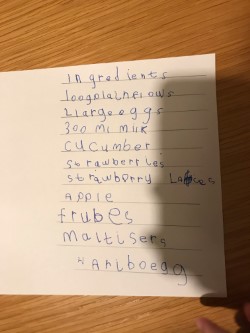 Ingredients
100gplainflows
2largeeggs
300 ml milk
CUCumber
strawberries
strawberry Laces
APPle
frubes
maltisers